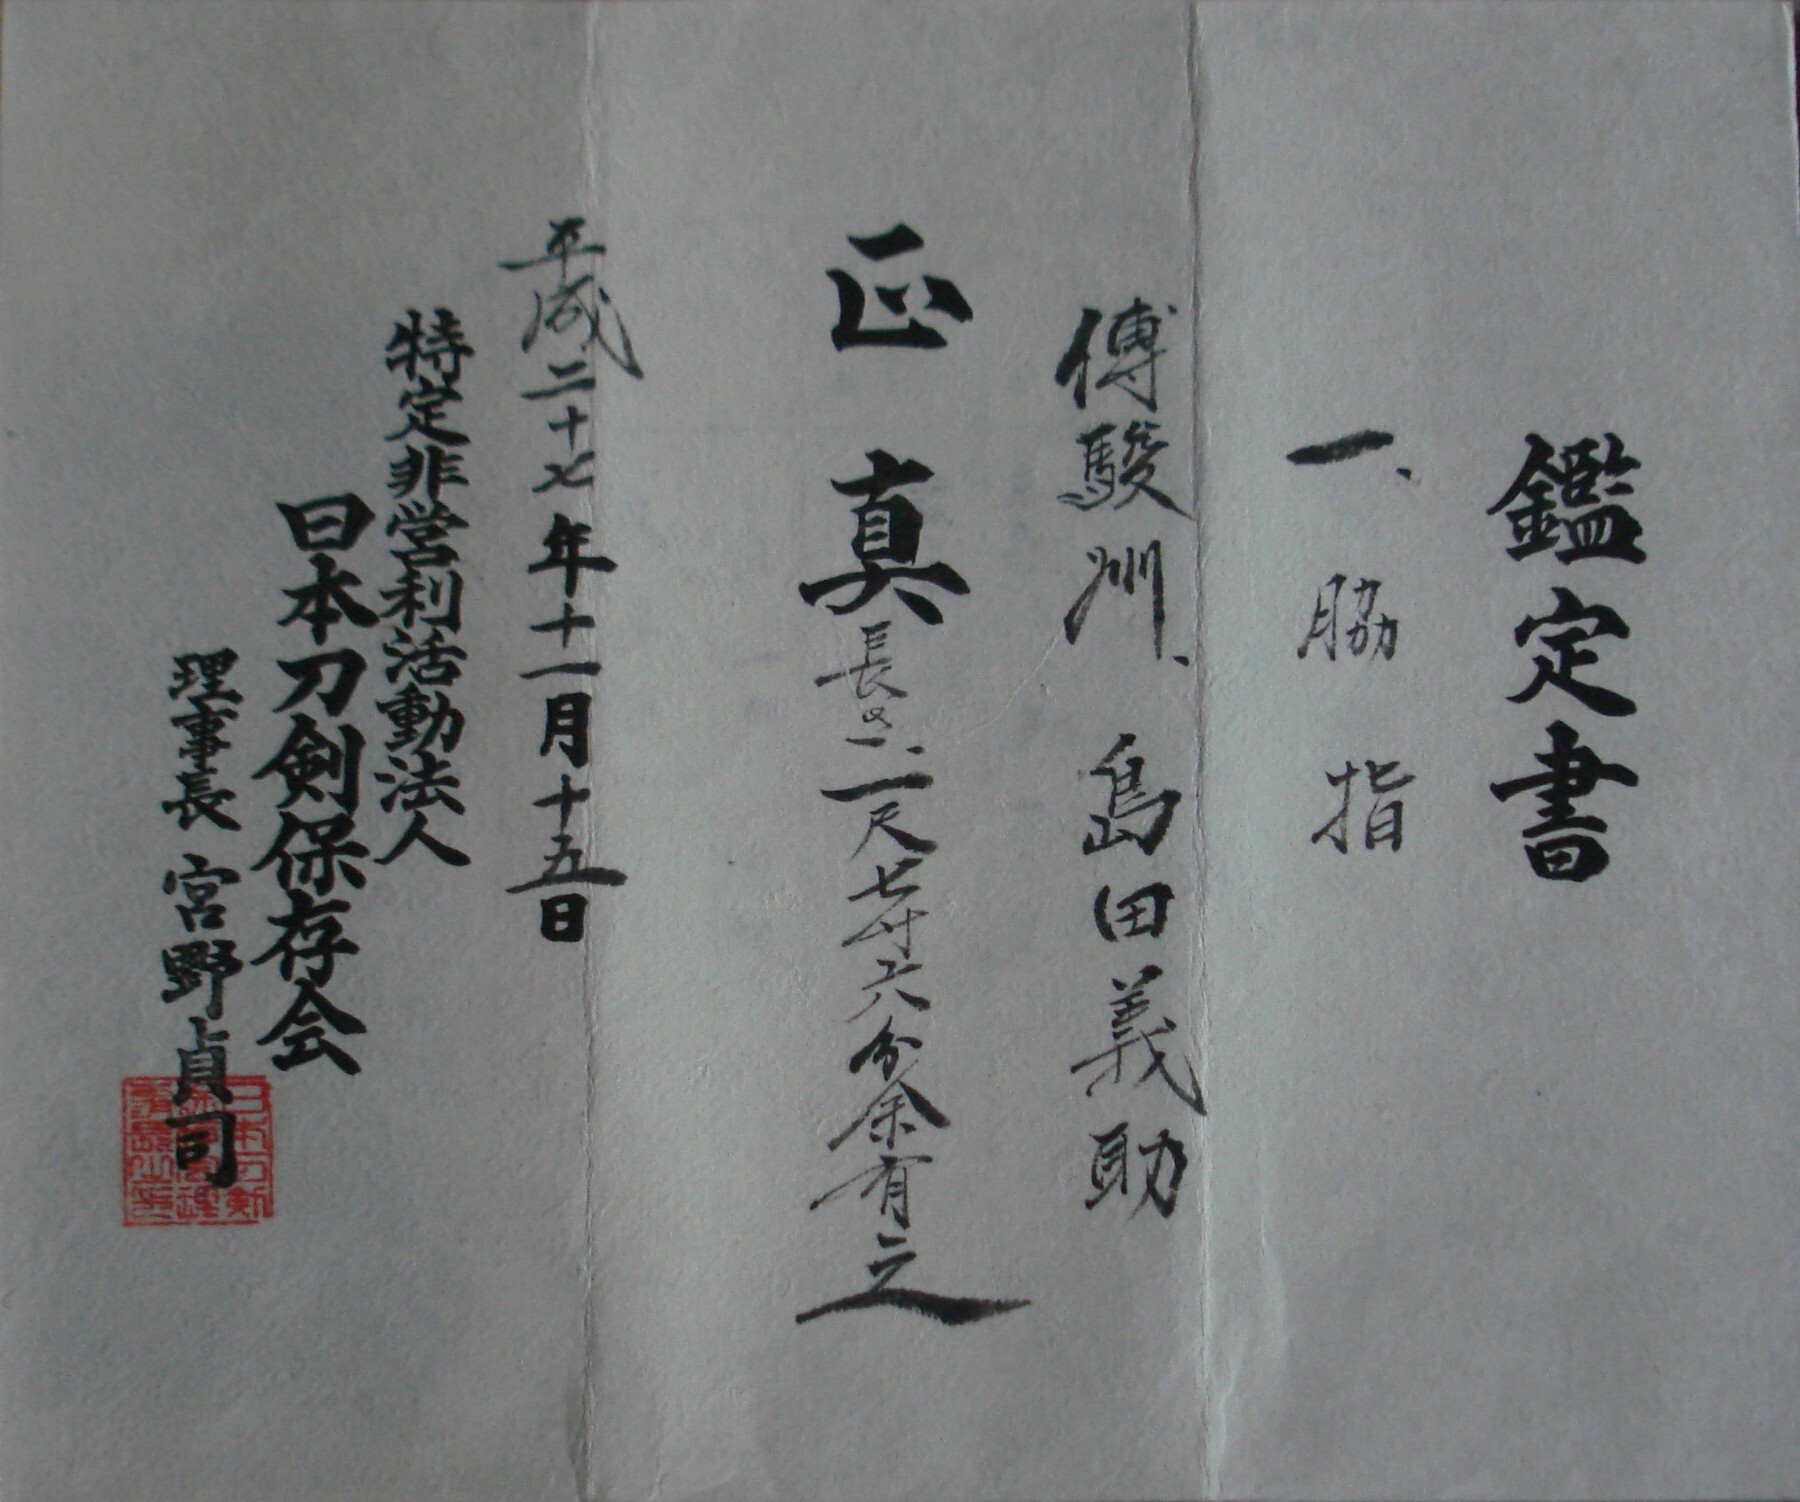 鑑定書
一、脇指
傳駿州、島田義助
正真
長さ、一尺七寸六分余有之
平成二十七年十一月十五日
特定非営利活動法人
日本刀剣保存会
理事長 宮野貞司